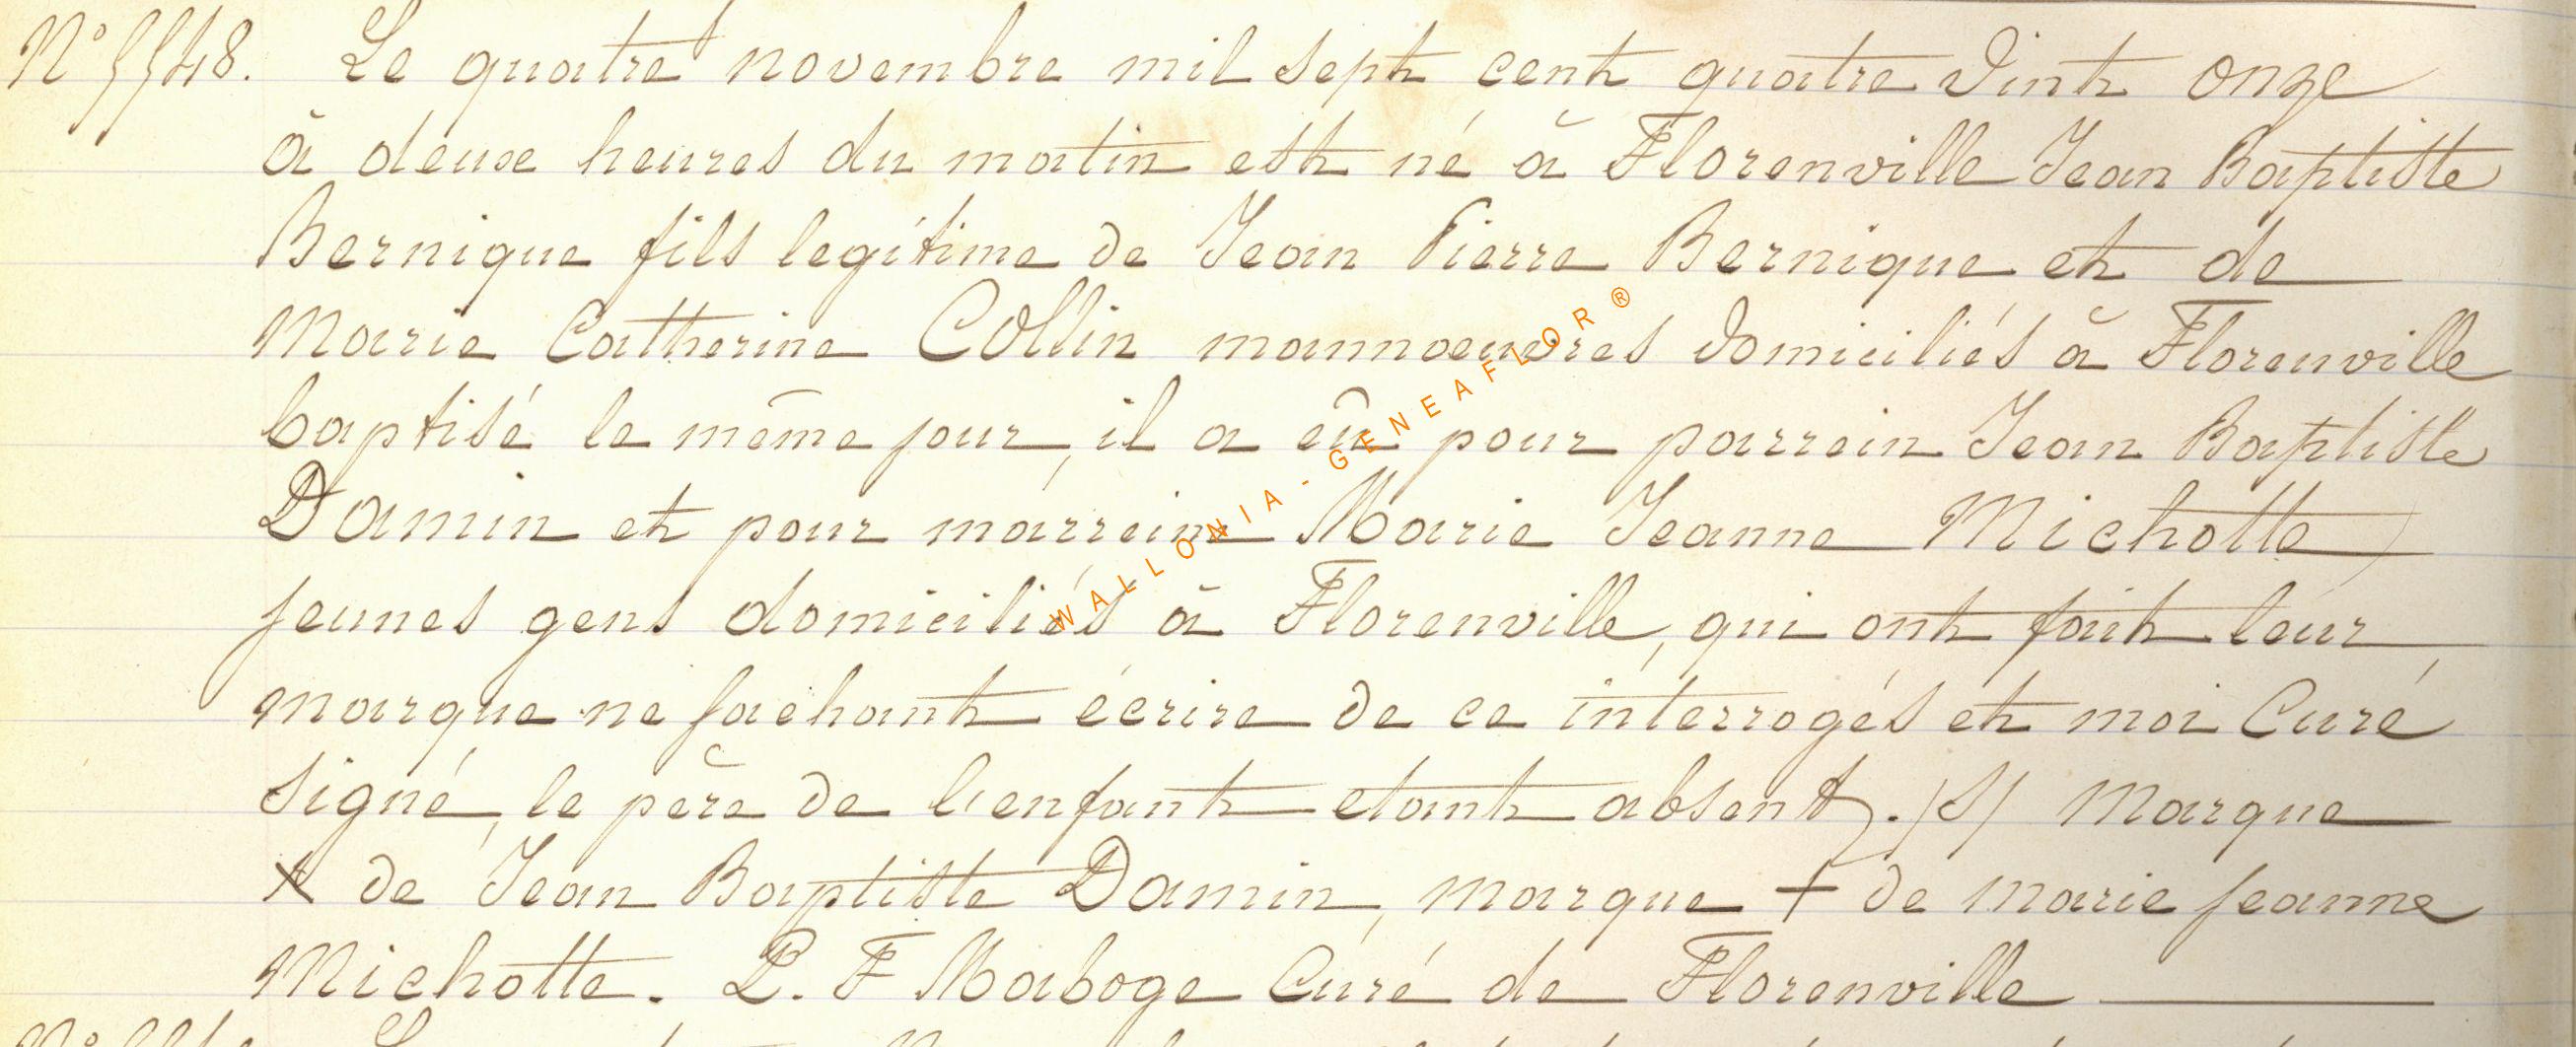 N° 5548. Le quatre novembre mil sept cent quatre vint onze
à deux heures du matin est né à Florenville Jean Baptiste
Bernique fils legitime de Jean Pierre Bernique et de
Marie Catherine Collin mannoeuvres domiciliés à Florenville
baptisé le même jour, il a eû pour parrein Jean Baptiste
Damin et pour marreine Marie Jeanne Michotte
jeunes gens domiciliés à Florenville, qui ont fait leur
marque ne sachant écrire de ce interrogés et moi Curé
signé, le père de l'enfant etant absent. /S/ Marque
X de Jean Baptiste Damin, marque + de marie jeanne
Michotte. L. F Maboge Curé de Florenville
WALLONIA - GENEAFLOR ®